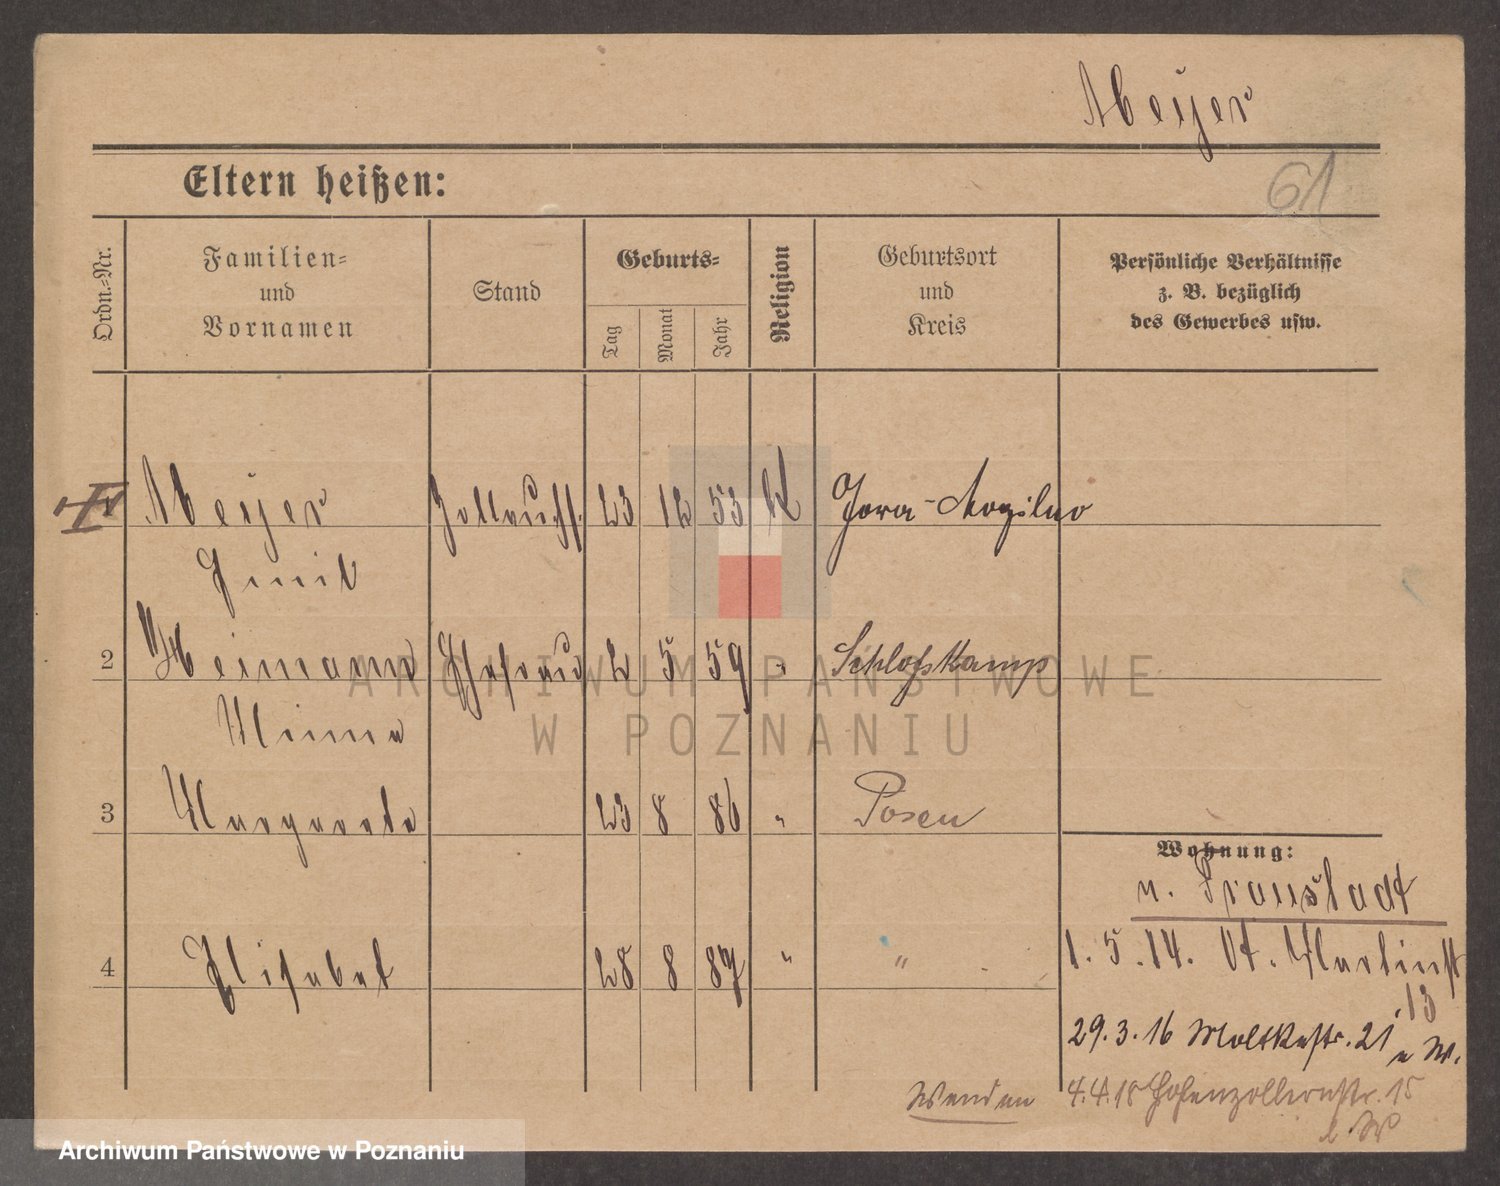 Meyer
61
Eltern heißen:
Ordn.-Nr.
Familien-
und
Vornamen
Stand
Geburts-
Tag
Monat
Jahr
Religion
Geburtsort
und
Kreis
Persönliche Verhältnisse
z. B. bezüglich
des Gewerbes usw.
Meyer 23 12 53 K
Emil
2 Heimann Ehefrau 2 5 59 " Schloßkamp
Minna
3 Margarete 23 8 86 " Posen
4 Elisabet 28 8 87 " "
Wohnung:
v. Fraustadt
1. 5. 14. St. Martinstr
13
29. 3. 16 Moltkestr. 21
4. 4. 18 Hohenzollernstr. 15
Wenden
ARCHIWUM PAŃSTWOWE
W POZNANIU
Archiwum Państwowe w Poznaniu